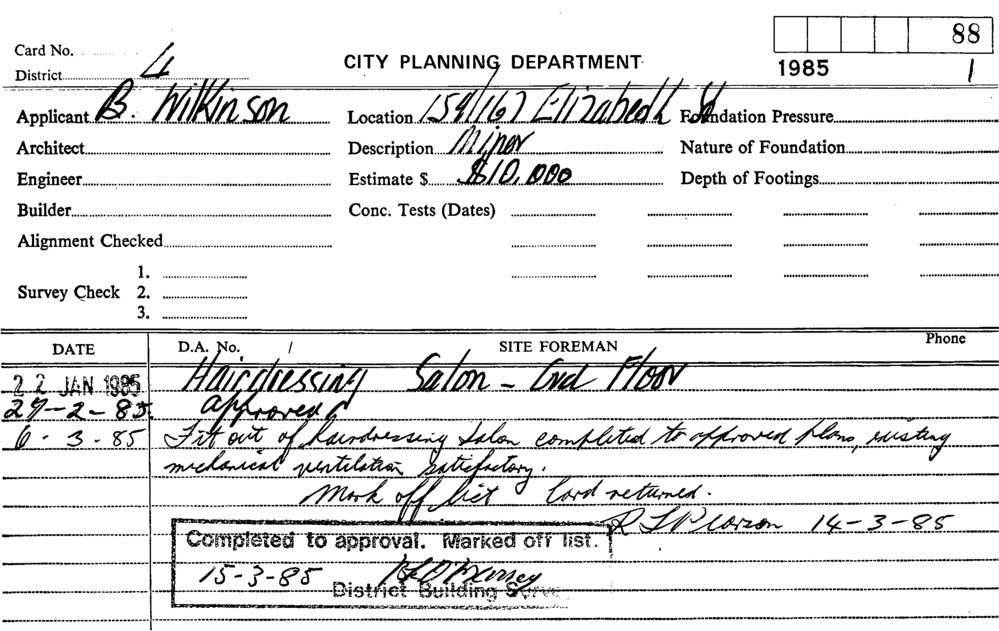 88
Card No.
CITY PLANNING DEPARTMENT
1985 1
District 4
Applicant B. Wilkinson Location 159/167 Elizabeth St Foundation Pressure
Architect Description Minor Nature of Foundation
Engineer Estimate $ $10,000 Depth of Footings
Builder Conc. Tests (Dates)
Alignment Checked
1.
Survey Check 2.
3.
DATE D.A. No. / SITE FOREMAN Phone
22 JAN 1985 Hairdressing Salon - Grd Floor
27-2-85. approved
6-3-85 Fit out of hairdressing salon completed to approved plans, existing
mechanical ventilation satisfactory.
Mark off list Card returned.
14-3-85
Completed to approval. Marked off list.
15-3-85
District Building